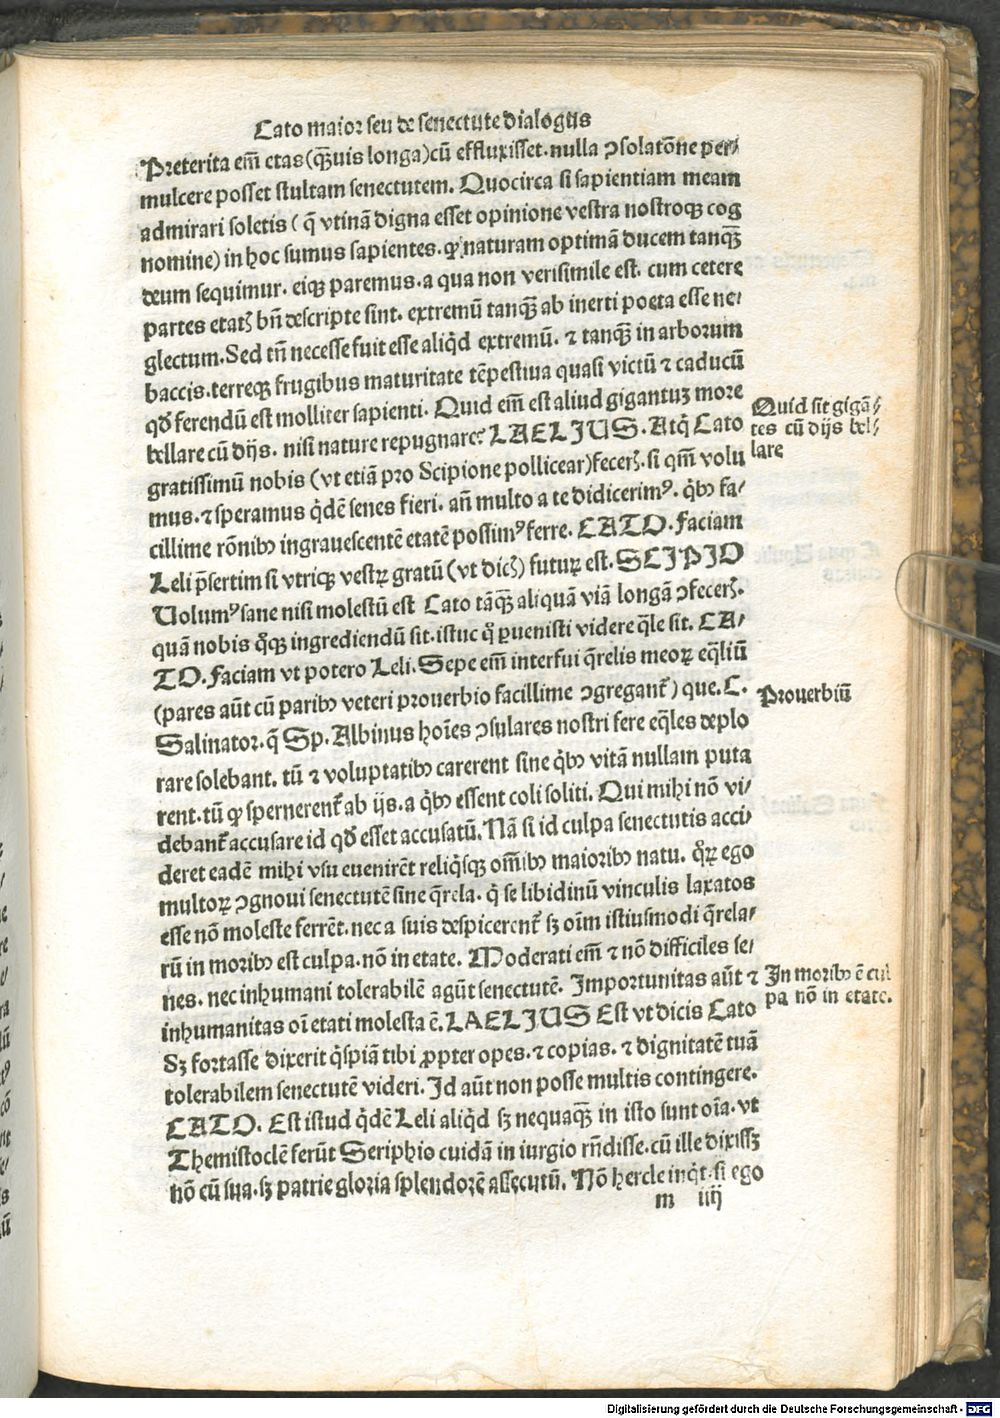 Cato maior seu de senectute dialogus
Preterita em̃ etas (q̃uis longa) cũ effluxisset. nulla ꝯsolatõne per/
mulcere posset stultam senectutem. Quocirca si sapientiam meam
admirari soletis (q̃ vtinã digna esset opinione vestra nostroqꝫ cog
nomine) in hoc sumus sapientes. ꝙ naturam optimã ducem tanqꝫ̃
deum sequimur. eiqꝫ paremus. a qua non verisimile est. cum cetere
partes etatꝭ bñ descripte sint. extremũ tanqꝫ̃ ab inerti poeta esse ne/
glectum. Sed tñ necesse fuit esse aliq̇d extremũ. ⁊ tanqꝫ̃ in arborum
baccis. terreqꝫ frugibus maturitate tẽpestiua quasi victũ ⁊ caducũ
qḋ ferendũ est molliter sapienti. Quid em̃ est aliud gigantuꝫ more
bellare cũ dijs. nisi nature repugnare? LAELIUS. Atq̇ Cato
gratissimũ nobis (vt etiã pro Scipione pollicear) fecerꝭ. si qm̃ volu
mus. ⁊ speramus q̇dẽ senes fieri. añ multo a te didicerimꝰ. q̇bꝫ fa/
cillime rõnibꝫ ingrauescentẽ etatẽ possimꝰ ferre. CATO. Faciam
Leli p̃sertim si vtriqꝫ vestrꝝ gratũ (vt dicꝭ) futurꝝ est. SCIPIO
Uolumꝰ sane nisi molestũ est Cato tãqꝫ̃ aliquã viã longã ꝯfecerꝭ.
quã nobis q̊qꝫ ingrediendũ sit. istuc q̊ ꝑuenisti videre q̃le sit. CA/
TO. Faciam vt potero Leli. Sepe em̃ interfui q̃relis meoꝝ eq̃liũ
(pares aũt cũ paribꝫ veteri prouerbio facillime ꝯgregant̃) que. C.
Salinator. q̃ Sp. Albinus hoĩes ꝯsulares nostri fere eq̃les deplo
rare solebant. tũ ⁊ voluptatibꝫ carerent sine q̇bꝫ vitã nullam puta
rent. tũ ꝙ spernerent̃ ab ijs. a q̇bꝫ essent coli soliti. Qui mihi nõ vi/
debant̃ accusare id qḋ esset accusatũ. Nã si id culpa senectutis acci/
deret eadẽ mihi vsu euenirẽt reliq̇sqꝫ om̃ibꝫ maioribꝫ natu. q̊ꝝ ego
multoꝝ ꝯgnoui senectutẽ sine q̃rela. q̇ se libidinũ vinculis laxatos
esse nõ moleste ferrẽt. nec a suis despicerent̃ sꝫ oĩm istiusmodi q̃rela/
rũ in moribꝫ est culpa. nõ in etate. Moderati em̃ ⁊ nõ difficiles se/
nes. nec inhumani tolerabilẽ agũt senectutẽ. Importunitas aũt ⁊
inhumanitas oĩ etati molesta ẽ. LAELIUS Est vt dicis Cato
Sꝫ fortasse dixerit q̇spiã tibi ꝓpter opes. ⁊ copias. ⁊ dignitatẽ tuã
tolerabilem senectutẽ videri. Id aũt non posse multis contingere.
CATO. Est istud q̇dẽ Leli aliq̇d sꝫ nequaqꝫ̃ in isto sunt oĩa. vt
Themistoclẽ ferũt Seriphio cuidã in iurgio rñdisse. cũ ille dixissꝫ
nõ eũ sua. sꝫ patrie gloria splendorẽ assecutũ. Nõ hercle inq̇t. si ego
m iiij
Quid sit gigã/
tes cũ dijs bel/
lare
Prouerbiũ
In moribꝫ ẽ cul
pa nõ in etate.
Digitalisierung gefördert durch die Deutsche Forschungsgemeinschaft - DFG